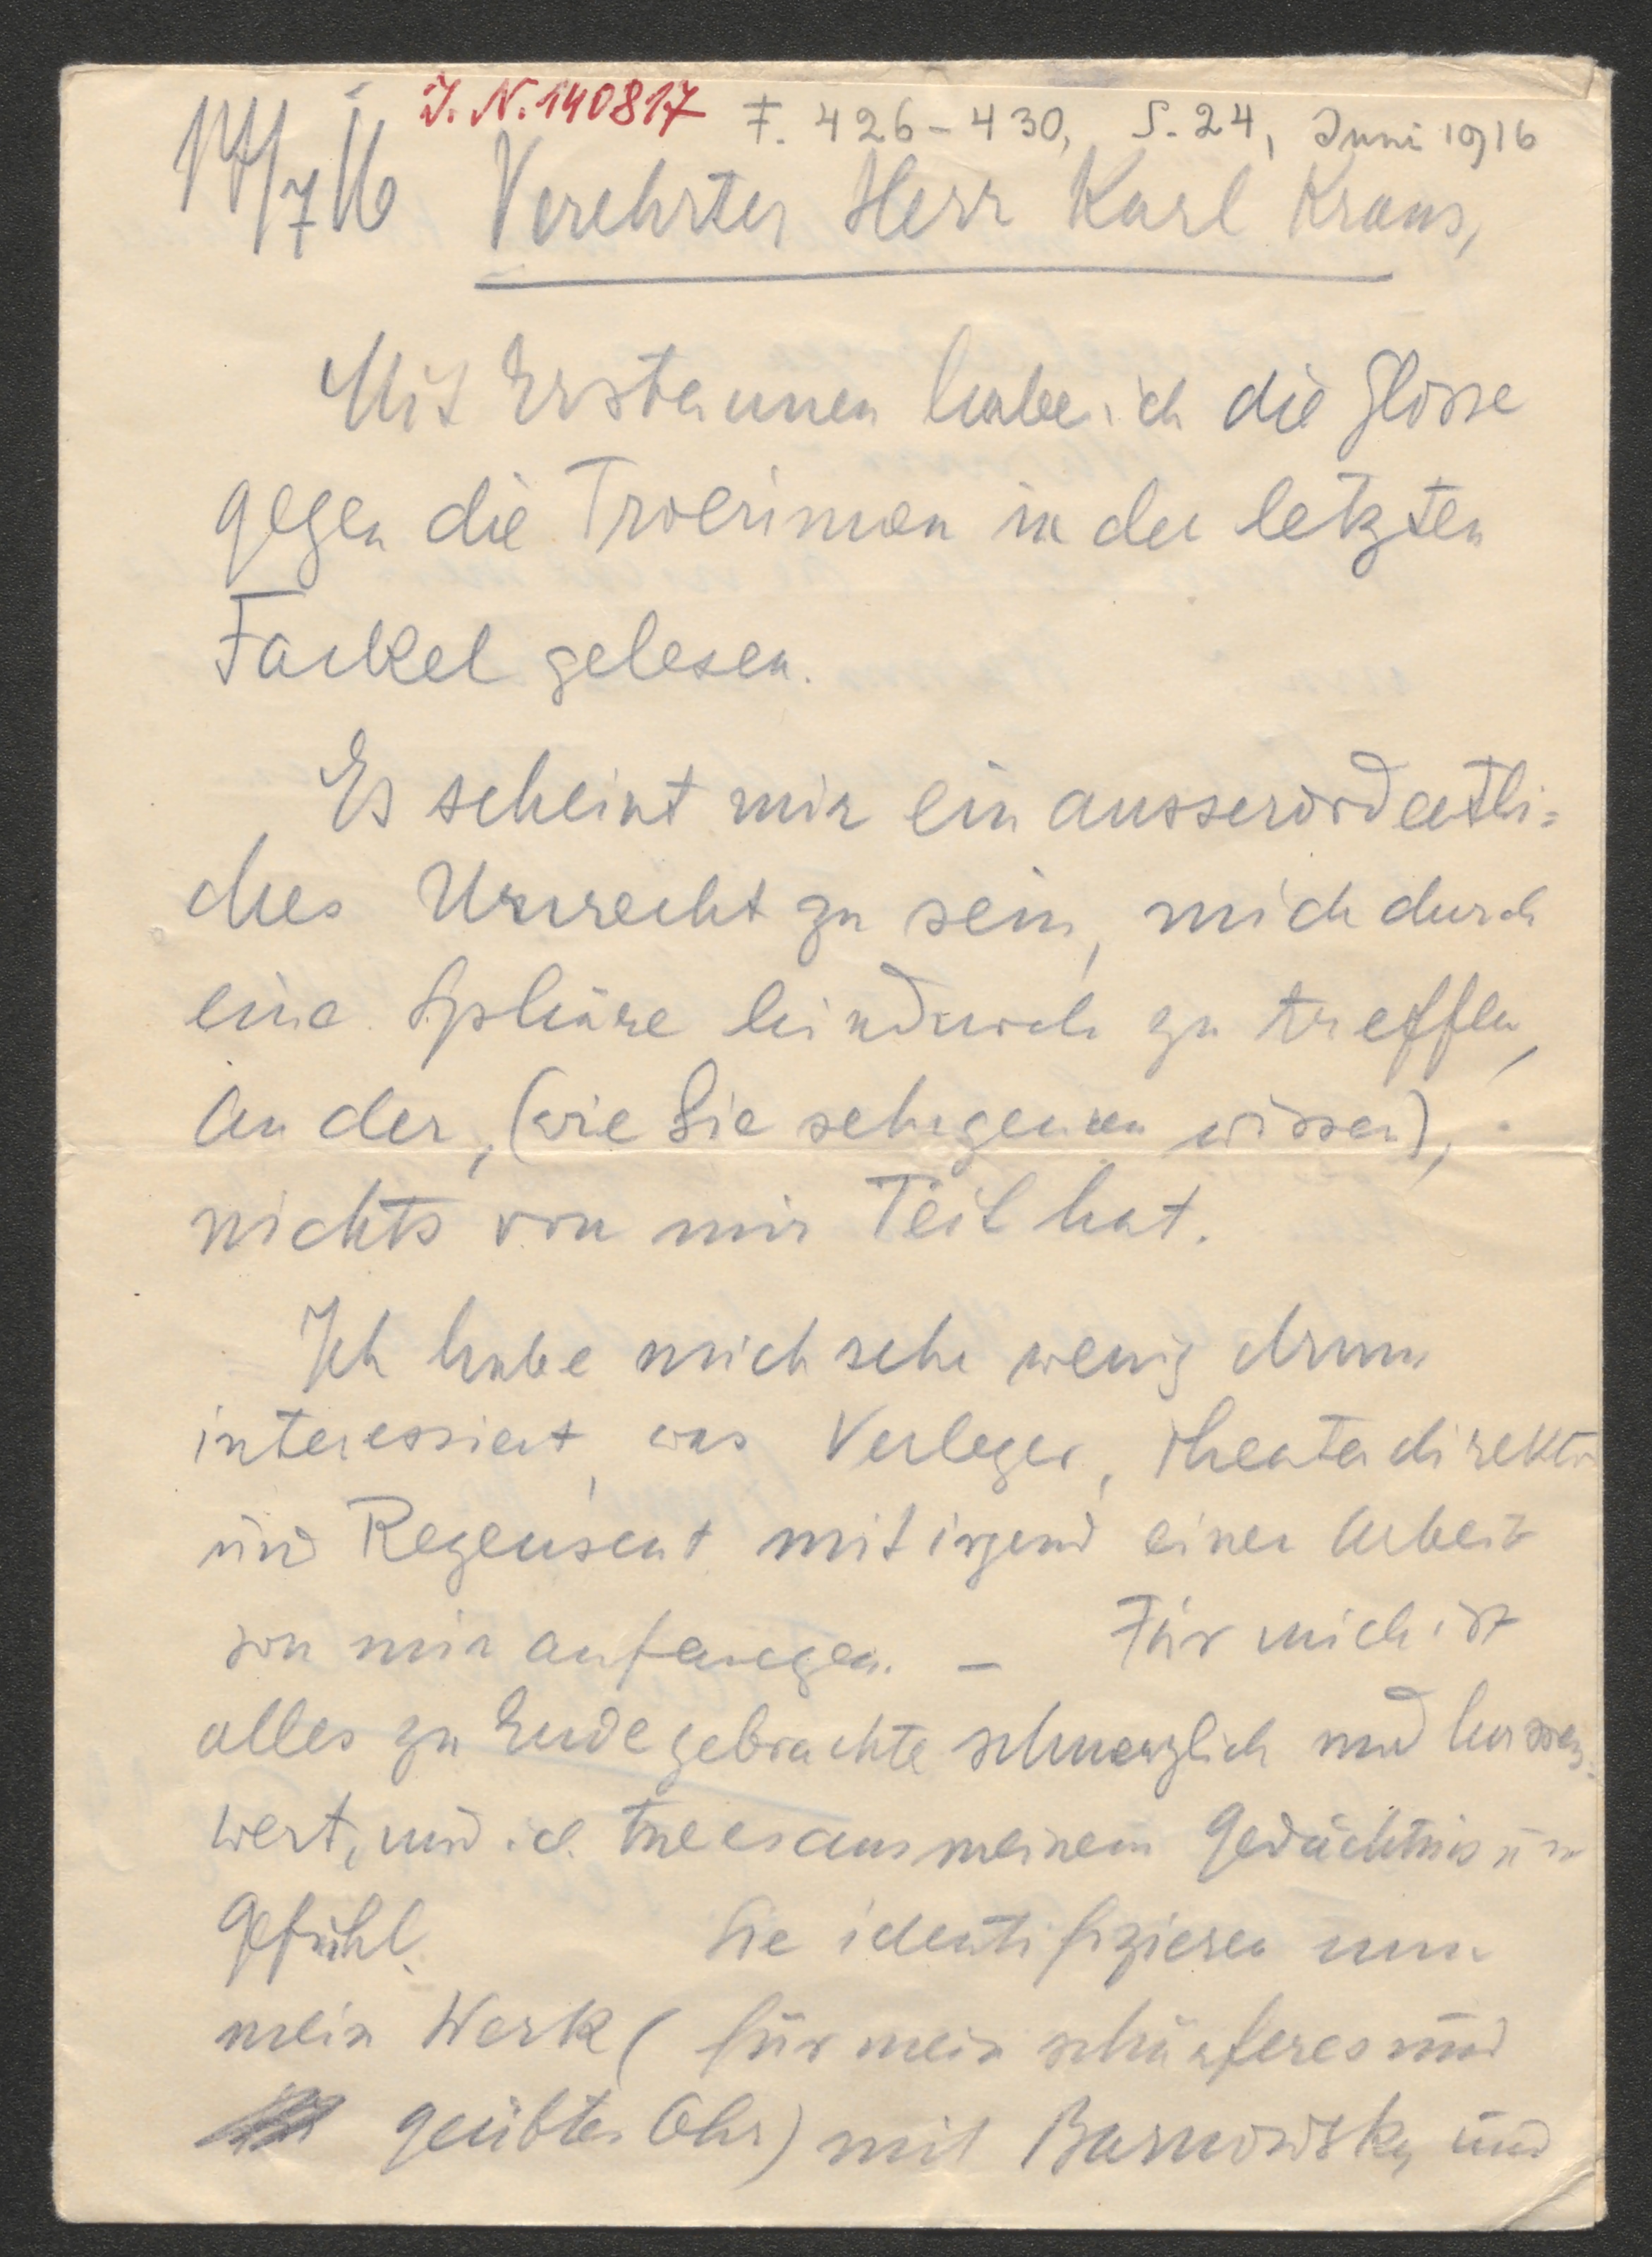 I. N. 140817
F. 426–430, S. 24, Juni 1916
17/7 16 Verehrter Herr Karl Kraus,
Mit Erstaunen habe ich die Glosse
gegen die Troerinnen in der letzten
Fackel gelesen.
Es scheint mir ein ausserordentli=
ches Unrecht zu sein, mich durch
eine Sphäre hindurch zu treffen,
an der, (wie Sie sehr genau wissen),
nichts von mir Teil hat.
Ich habe mich sehr wenig drum
interessiert, was Verleger, Theaterdirektor
und Rezensent mit irgend einer Arbeit
von mir anfangen. – Für mich ist
alles zu Ende gebrachte schmerzlich und hassens=
wert, und ich tue es aus meinem Gedächtnis und
Gefühl. Sie identifizieren nun
mein Werk (für mein schärferes und
geübtes Ohr) mit Barnowsky und